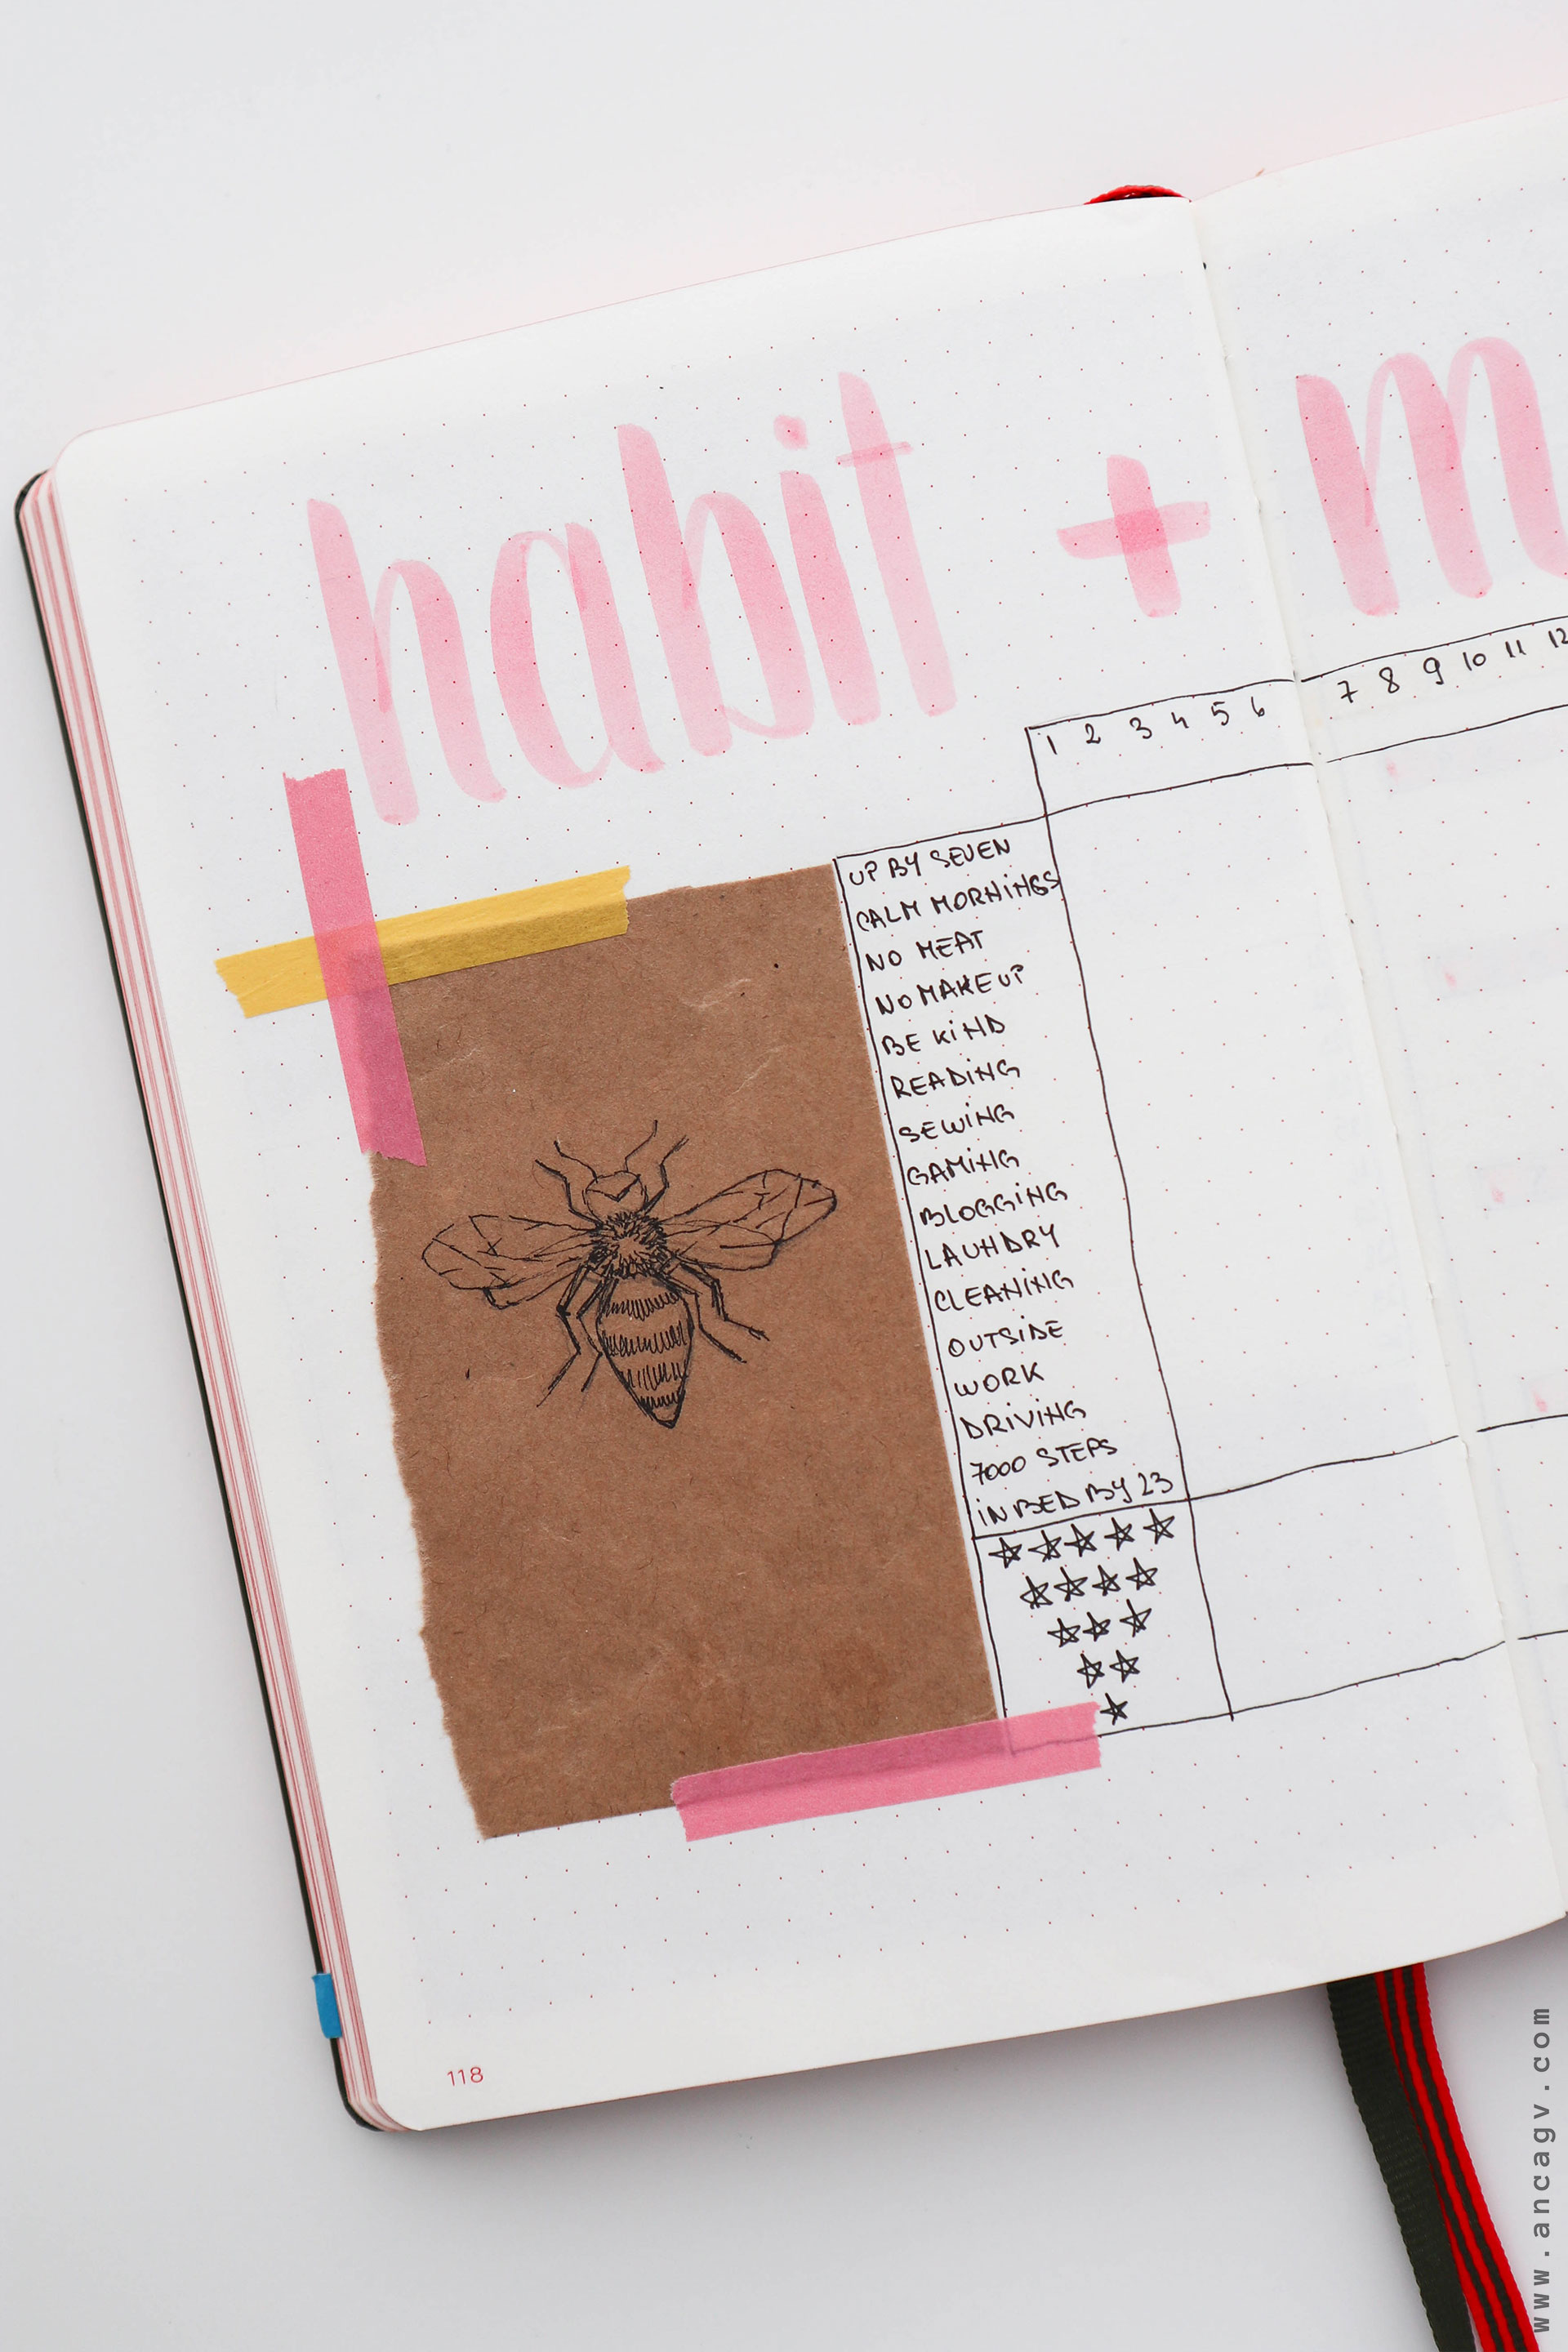 habit + m
1 2 3 4 5 6 7 8 9 10 11 12
UP BY SEVEN
CALM MORNINGS
NO MEAT
NO MAKEUP
BE KIND
READING
SEWING
GAMING
BLOGGING
LAUNDRY
CLEANING
OUTSIDE
WORK
DRIVING
7000 STEPS
IN BED BY 23
118
www.ancagv.com